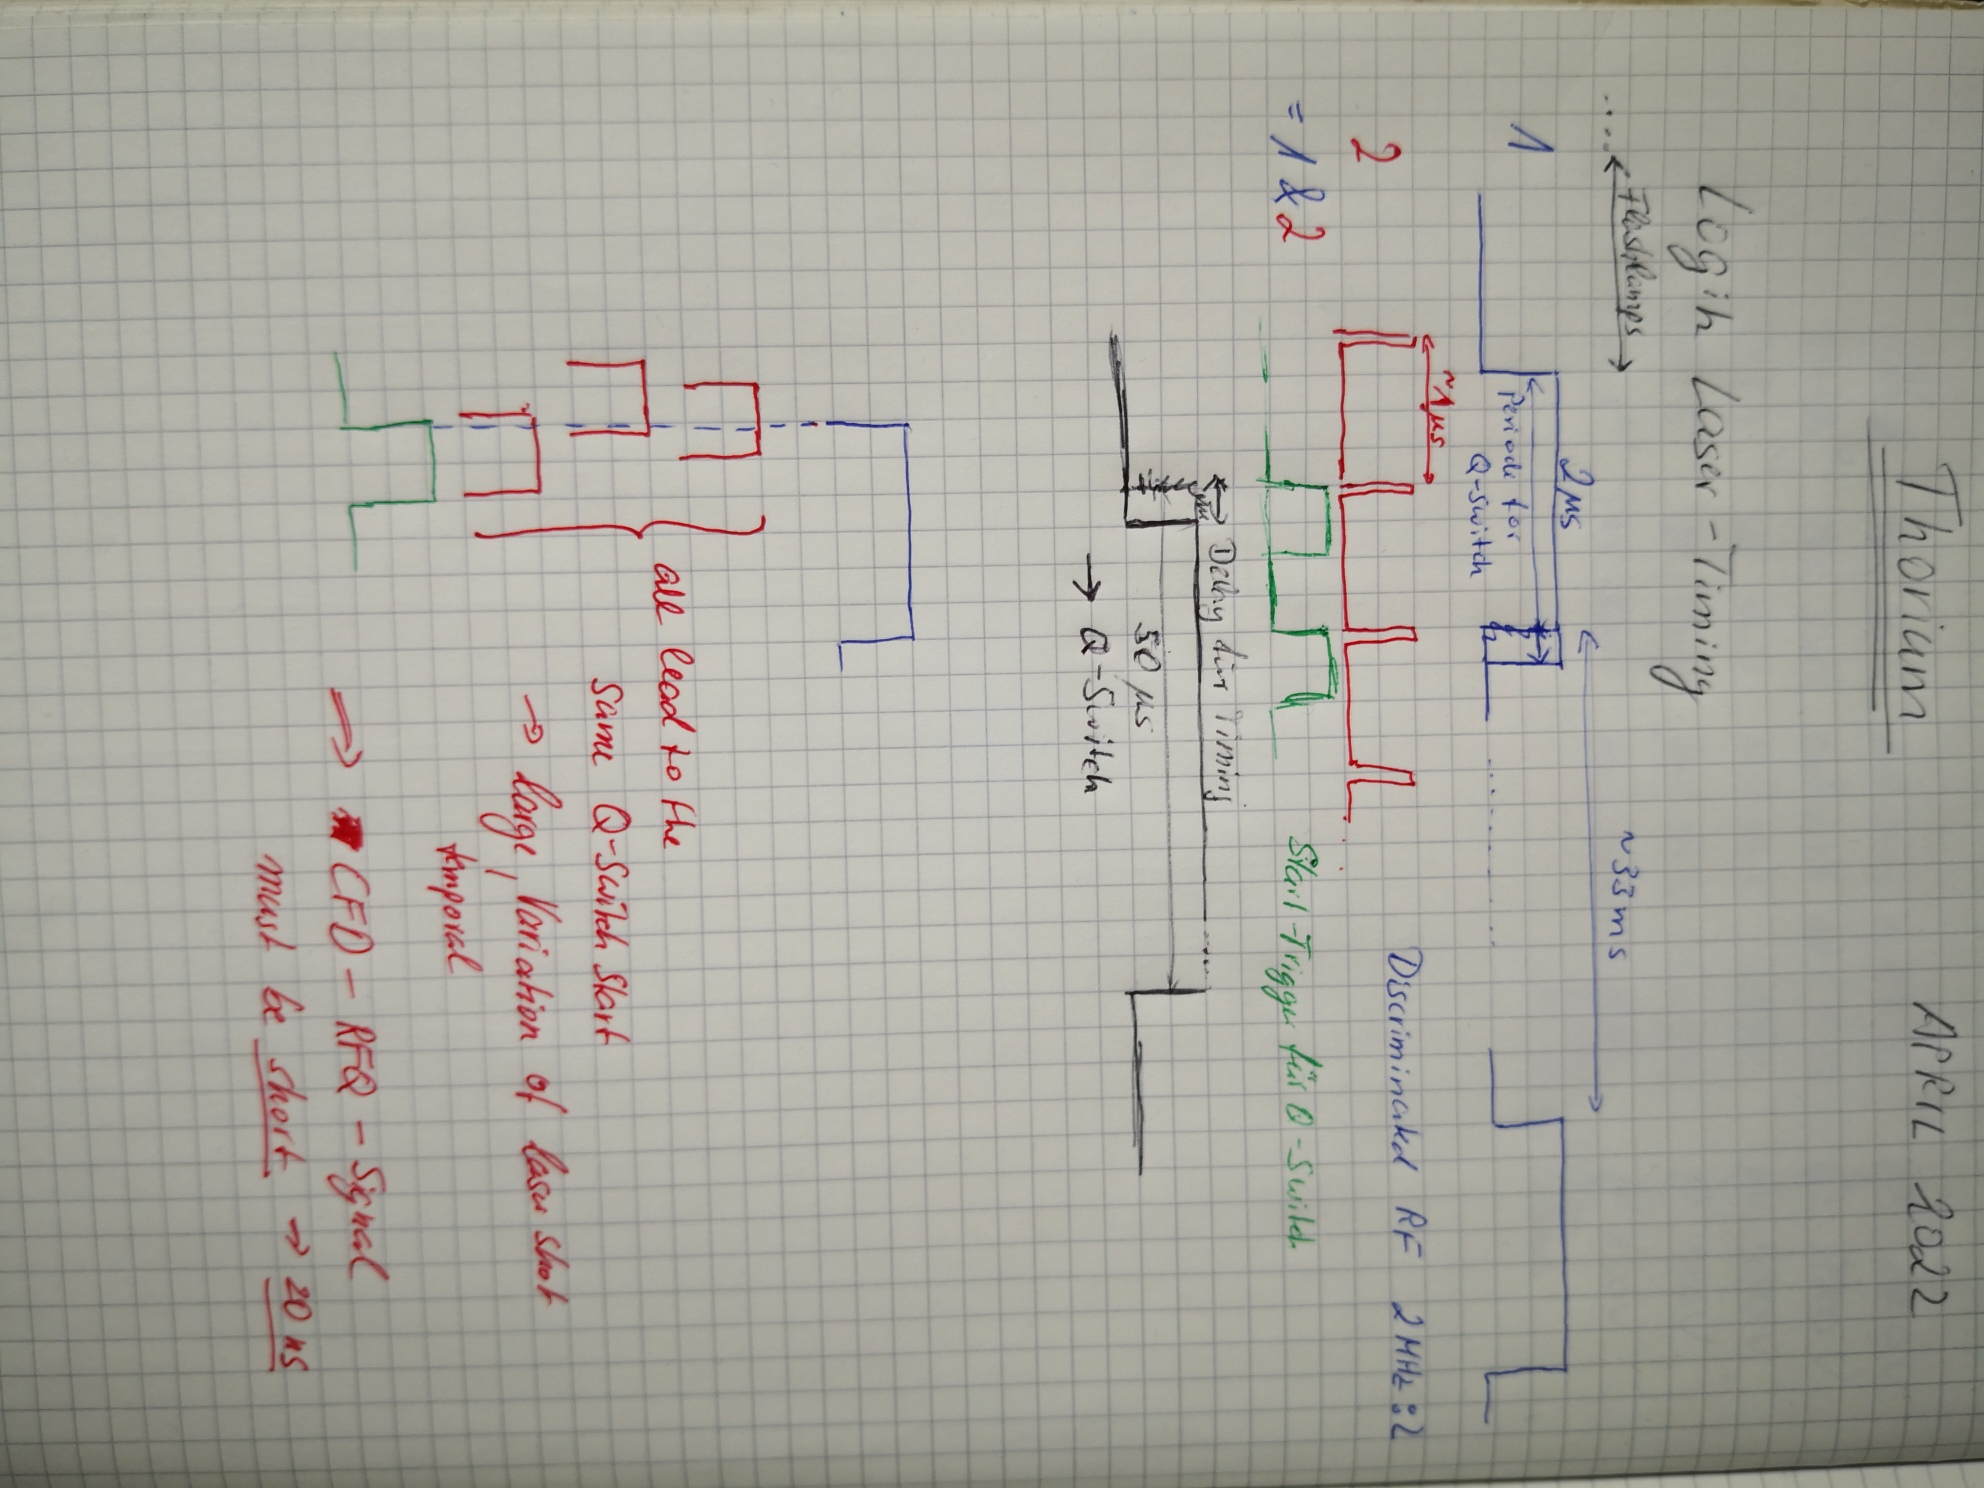 Thorium
APRIL 2022
Login Laser-Timing
.... Flashlamps
~33ms
2µs
1
Periode for
Q-Switch
~1µs
2
Discriminated RF 2MHz:2
= 1 & 2
Start-Trigger für Q-Switch.
Delay für Timing
50 µs
→ Q-Switch
all lead to the
same Q-Switch Start
→ large, Variation of laser shot
temporal
⇒ CFD-RFQ-Signal
must be short → 20 ns